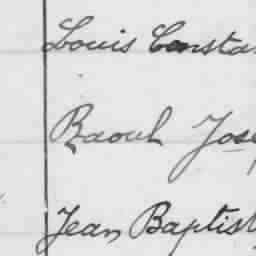 Louis Consta
Raoul Jose
Jean Baptist